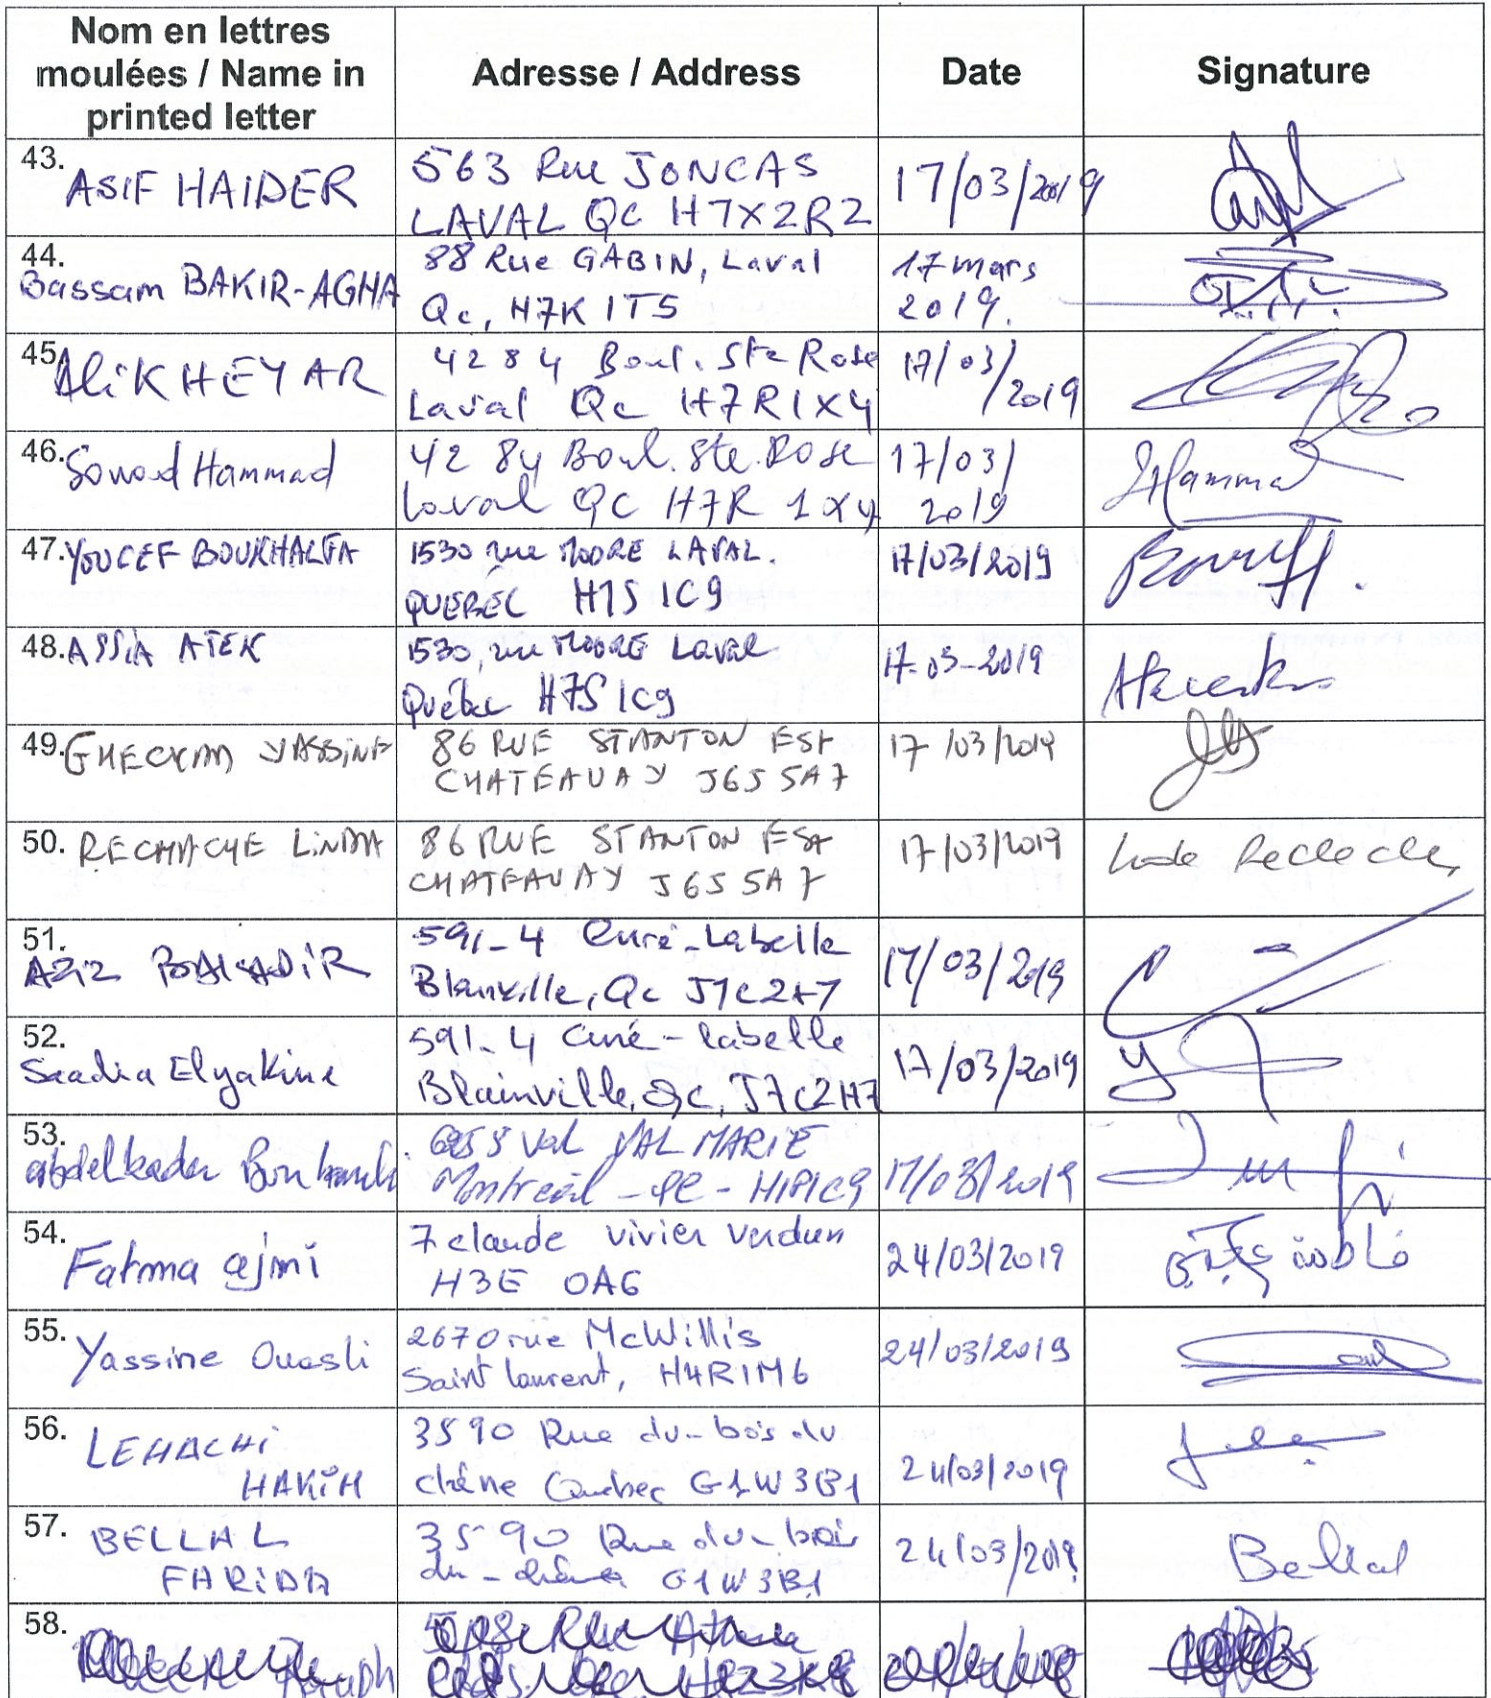 Nom en lettres
moulées / Name in
printed letter
Adresse / Address
Date
Signature
43.
ASIF HAIDER
563 Rue JONCAS
LAVAL QC H7X2R2
17/03/2019
44.
Bassam BAKIR-AGHA
88 Rue GABIN, Laval
Qc, H7K 1T5
17 mars
2019.
45.
Ali KHEYAR
4284 Boul. Ste Rose
Laval Qc H7R1X4
17/03/
2019
46. Souad Hammad
4284 Boul. Ste. Rose
Laval QC H7R 1X4
17/03/
2019
Hammad
47. YOUCEF BOUKHALFA
1530 rue MOORE LAVAL.
QUEBEC H7S 1C9
17/03/2019
48. ASSIA ATEK
1530, rue MOORE Laval
Québec H7S 1C9
17-03-2019
49. YASSINE
86 RUE STANTON EST
CHATEAUAY J6J 5A7
17/03/2019
50. RECHACHE LINDA
86 RUE STANTON EST
CHATEAUAY J6J 5A7
17/03/2019
51.
AZIZ
591-4 Curé-Labelle
Blainville, Qc J7C2H7
17/03/2019
52.
Saadia Elyakine
591-4 Curé-labelle
Blainville, Qc, J7C2H7
17/03/2019
53.
abdelkader
VAL MARIE
Montreal - QC - H1P1C9
17/03/2019
54.
Fatma ajmi
7 claude vivier verdun
H3E 0A6
24/03/2019
فاطمة عجمي
55.
Yassine Ouesli
2670 rue McWillis
Saint laurent, H4R1M6
24/03/2019
56.
LEHACHI
HAKIM
3590 Rue du-bois du
chêne Quebec G1W 3B1
24/03/2019
57.
BELLAL
FARIDA
3590 Rue du-bois
du-chêne G1W3B1
24/03/2019
Bellal
58.